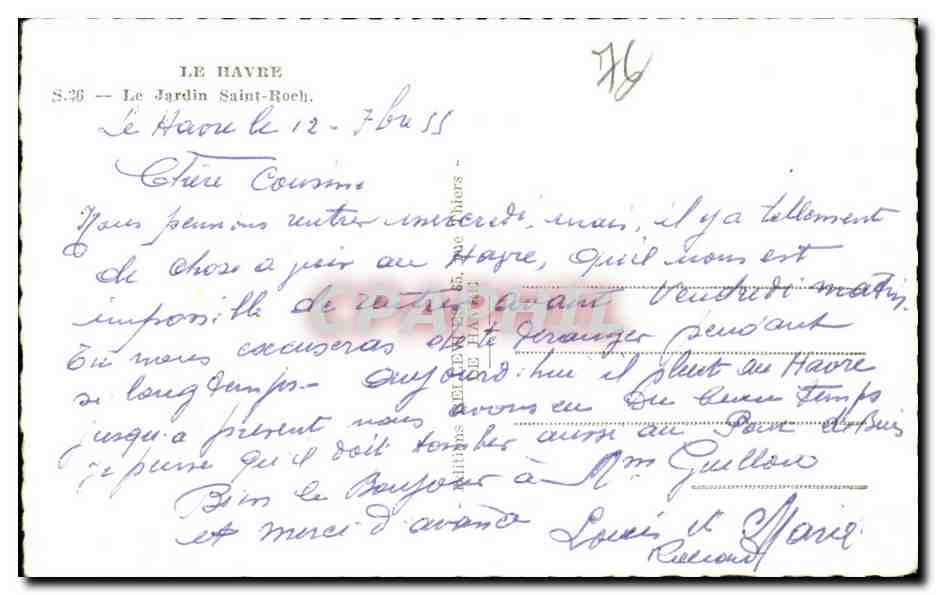 LE HAVRE
S.26 — Le Jardin Saint-Roch.
76
Le Havre le 12 - 7bre 55
Chère Cousine
Nous pensions rentrer mercredi, mais, il y a tellement
de chose a voir au Havre, qu'il nous est
impossible de rentrer avant Vendredi matin.
Tu nous excuseras de te deranger pendant
si longtemps - aujourd'hui il pleut au Havre
jusqu'a present nous avons eu du beau temps
je pense qu'il doit tomber aussi au
Bien le Bonjour à Mme Guillou
et merci d'avance
Louis et Marie
Editions ELLEVIRES 65, rue Thiers -
LE HAVRE
CPAPHIL